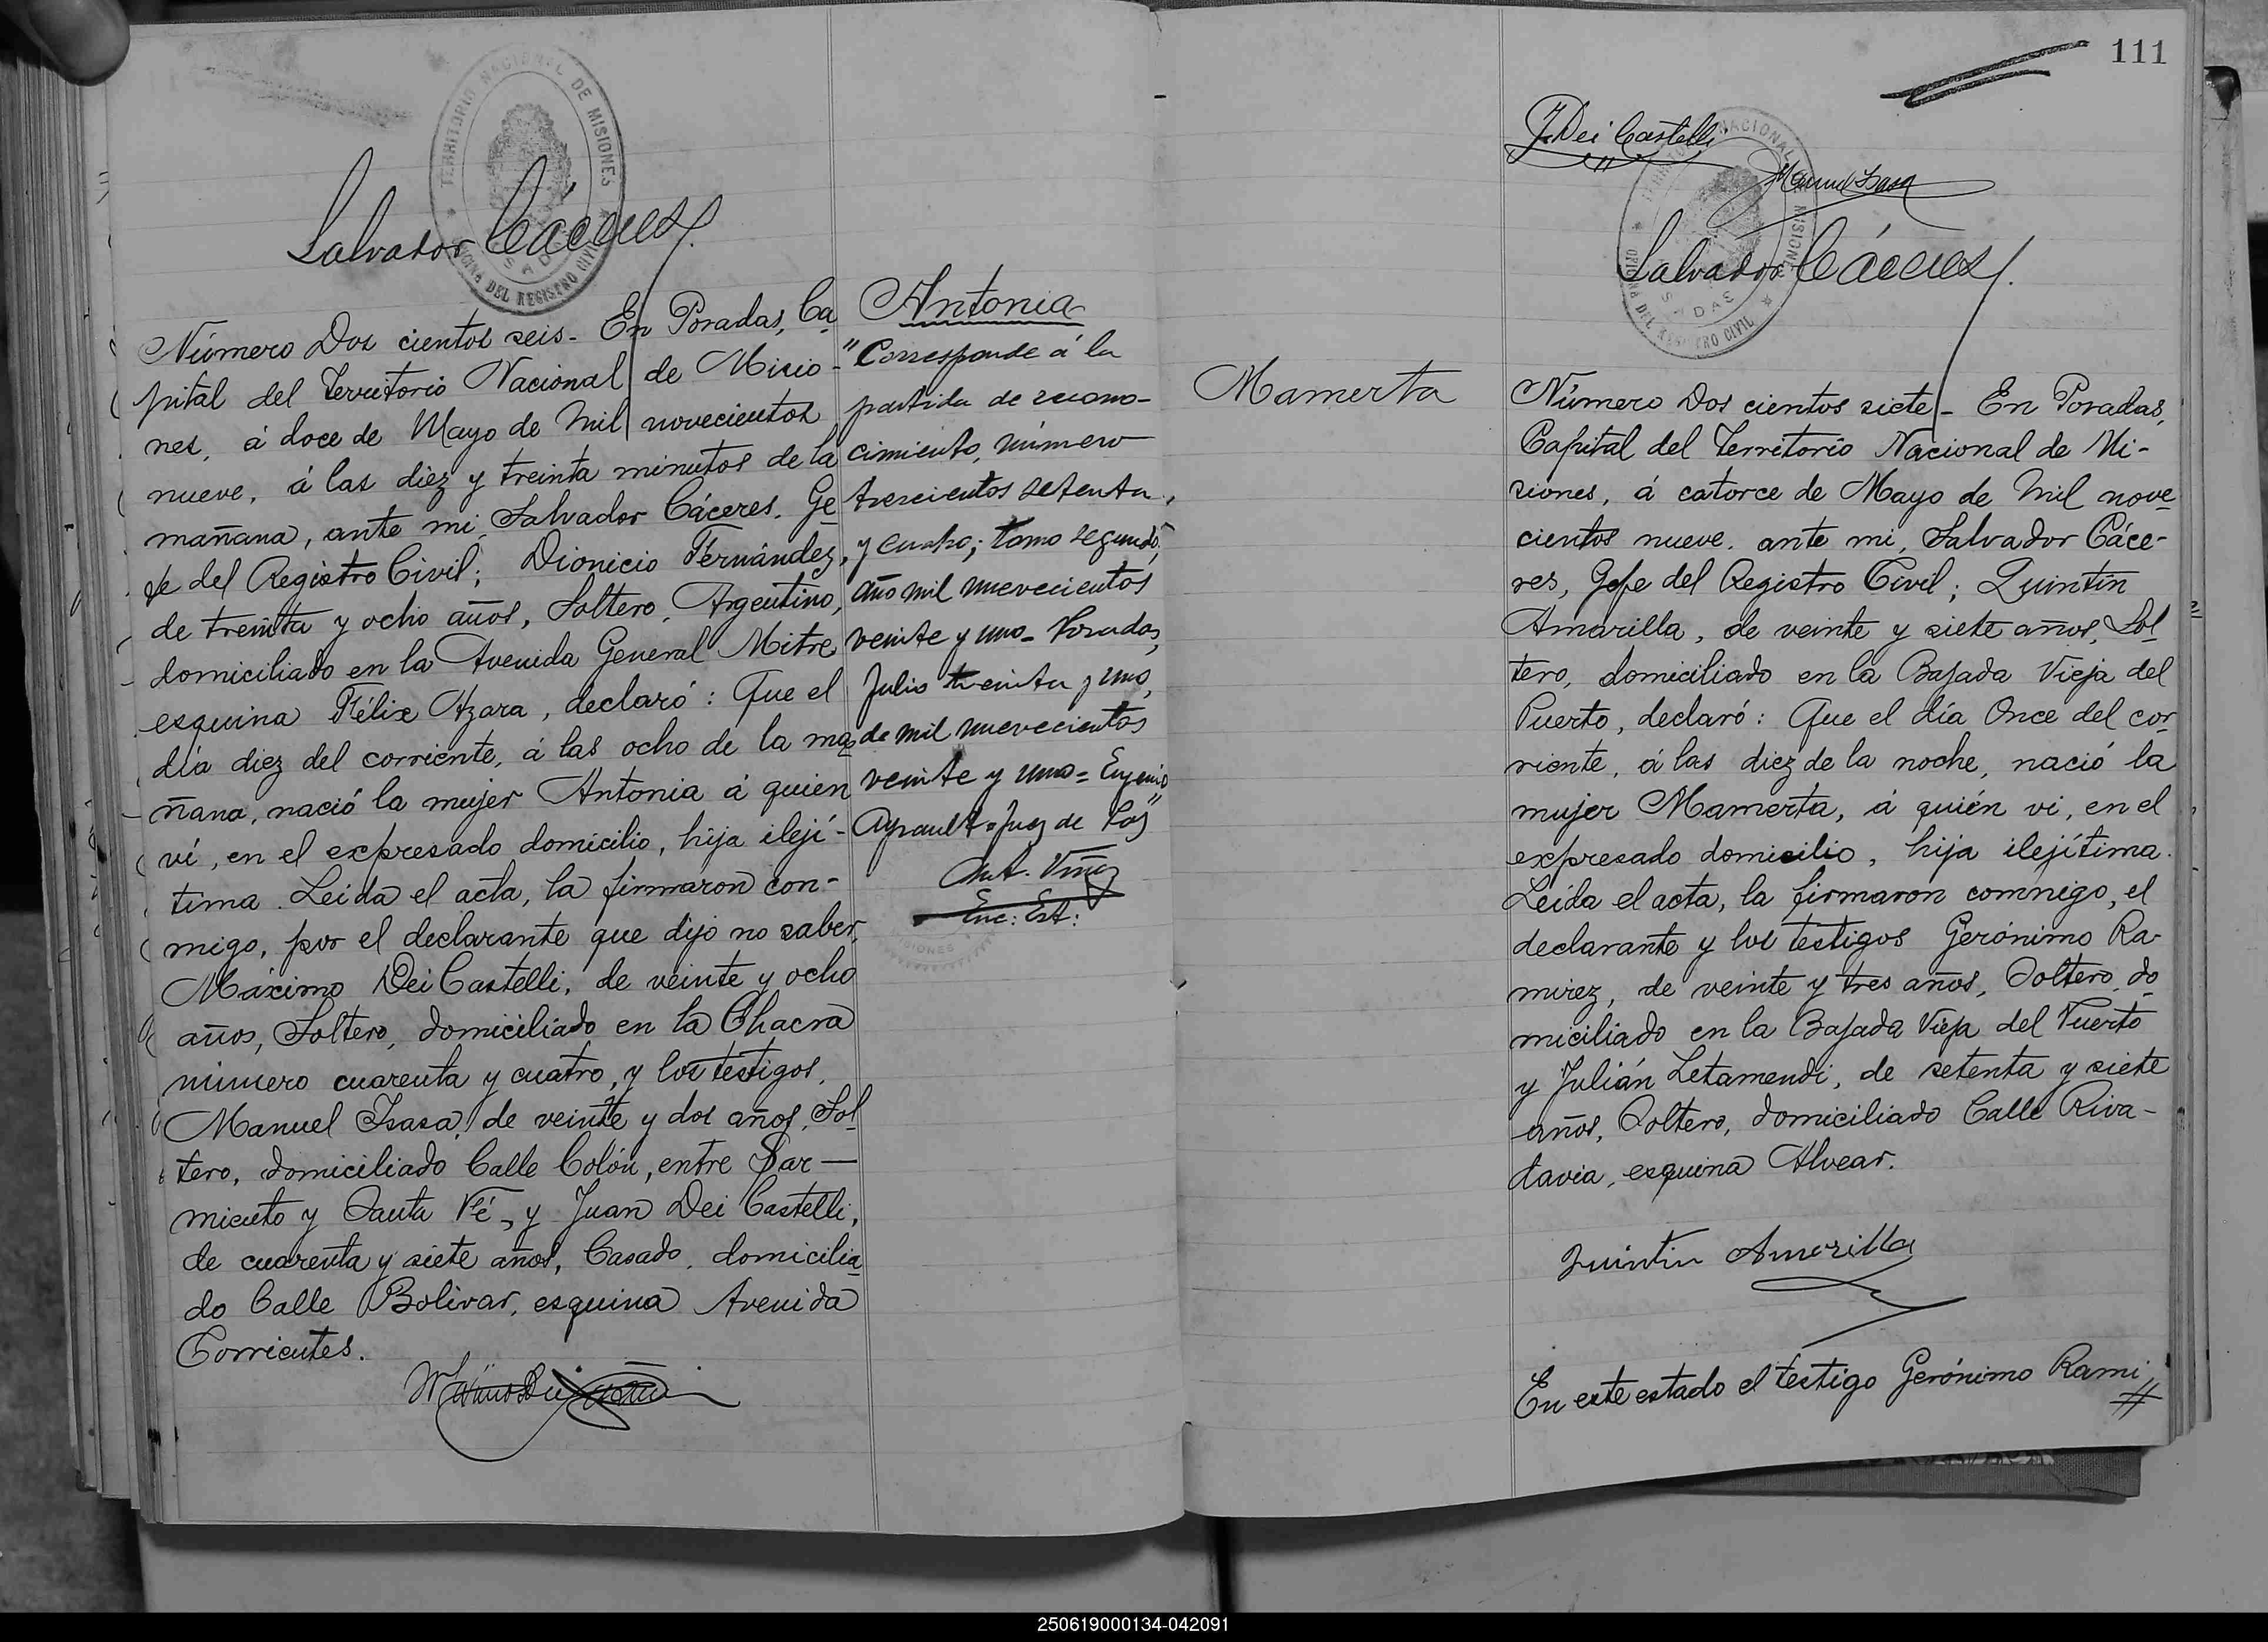 TERRITORIO NACIONAL DE MISIONES
OFICINA DEL REGISTRO CIVIL
Salvador Cáceres
Número Dos cientos seis - En Posadas, Ca
pital del Territorio Nacional de Misio-
nes, á doce de Mayo de Mil novecientos
nueve, á las diez y treinta minutos de la
mañana, ante mi, Salvador Cáceres. Ge
fe del Registro Civil; Dionicio Fernández,
de treinta y ocho años, Soltero, Argentino,
domiciliado en la Avenida General Mitre
esquina Félix Azara, declaró: Que el
día diez del corriente, á las ocho de la ma
ñana, nació la mujer Antonia á quien
ví, en el expresado domicilio, hija ilejí-
tima. Leida el acta, la firmaron con-
migo, por el declarante que dijo no saber,
Máximo Dei Castelli, de veinte y ocho
años, Soltero, domiciliado en la Chacra
número cuarenta y cuatro, y los testigos,
Manuel Isasa, de veinte y dos años, Sol
tero, domiciliado Calle Colón, entre Sar-
miento y Santa Fé, y Juan Dei Castelli,
de cuarenta y siete años, Casado, domicilia
do Calle Bolivar, esquina Avenida
Corrientes.
Máximo Dei Castelli
Antonia
"Corresponde á la
partida de recono-
cimiento, número
trescientos setenta
y cuatro; tomo segundo,
año mil nuevecientos
veinte y uno - Posadas,
Julio treinta y uno,
de mil nuevecientos
veinte y uno = Eugenio
Ayrault = Juez de Paz"
Ant. Viña
Enc: Est:
MISIONES
111
J. Dei Castelli
Manuel Isasa
Salvador Cáceres
NACIONAL
MISIONES
OFICINA DEL REGISTRO CIVIL
Mamerta
Número Dos cientos siete - En Posadas,
Capital del Territorio Nacional de Mi-
siones, á catorce de Mayo de Mil nove
cientos nueve. ante mi, Salvador Cáce-
res, Gefe del Registro Civil; Quintín
Amarilla, de veinte y siete años, Sol
tero, domiciliado en la Bajada Vieja del
Puerto, declaró: Que el día Once del cor
riente, á las diez de la noche, nació la
mujer Mamerta, á quién vi, en el
expresado domicilio, hija ilejítima.
Leída el acta, la firmaron comnigo, el
declarante y los testigos Gerónimo Ra-
mirez, de veinte y tres años, Soltero, do
miciliado en la Bajada Vieja del Puerto
y Julián Letamendi, de setenta y siete
años, Soltero, domiciliado Calle Riva-
davia, esquina Alvear.
Quintin Amarilla
En este estado el testigo Gerónimo Rami
250619000134-042091